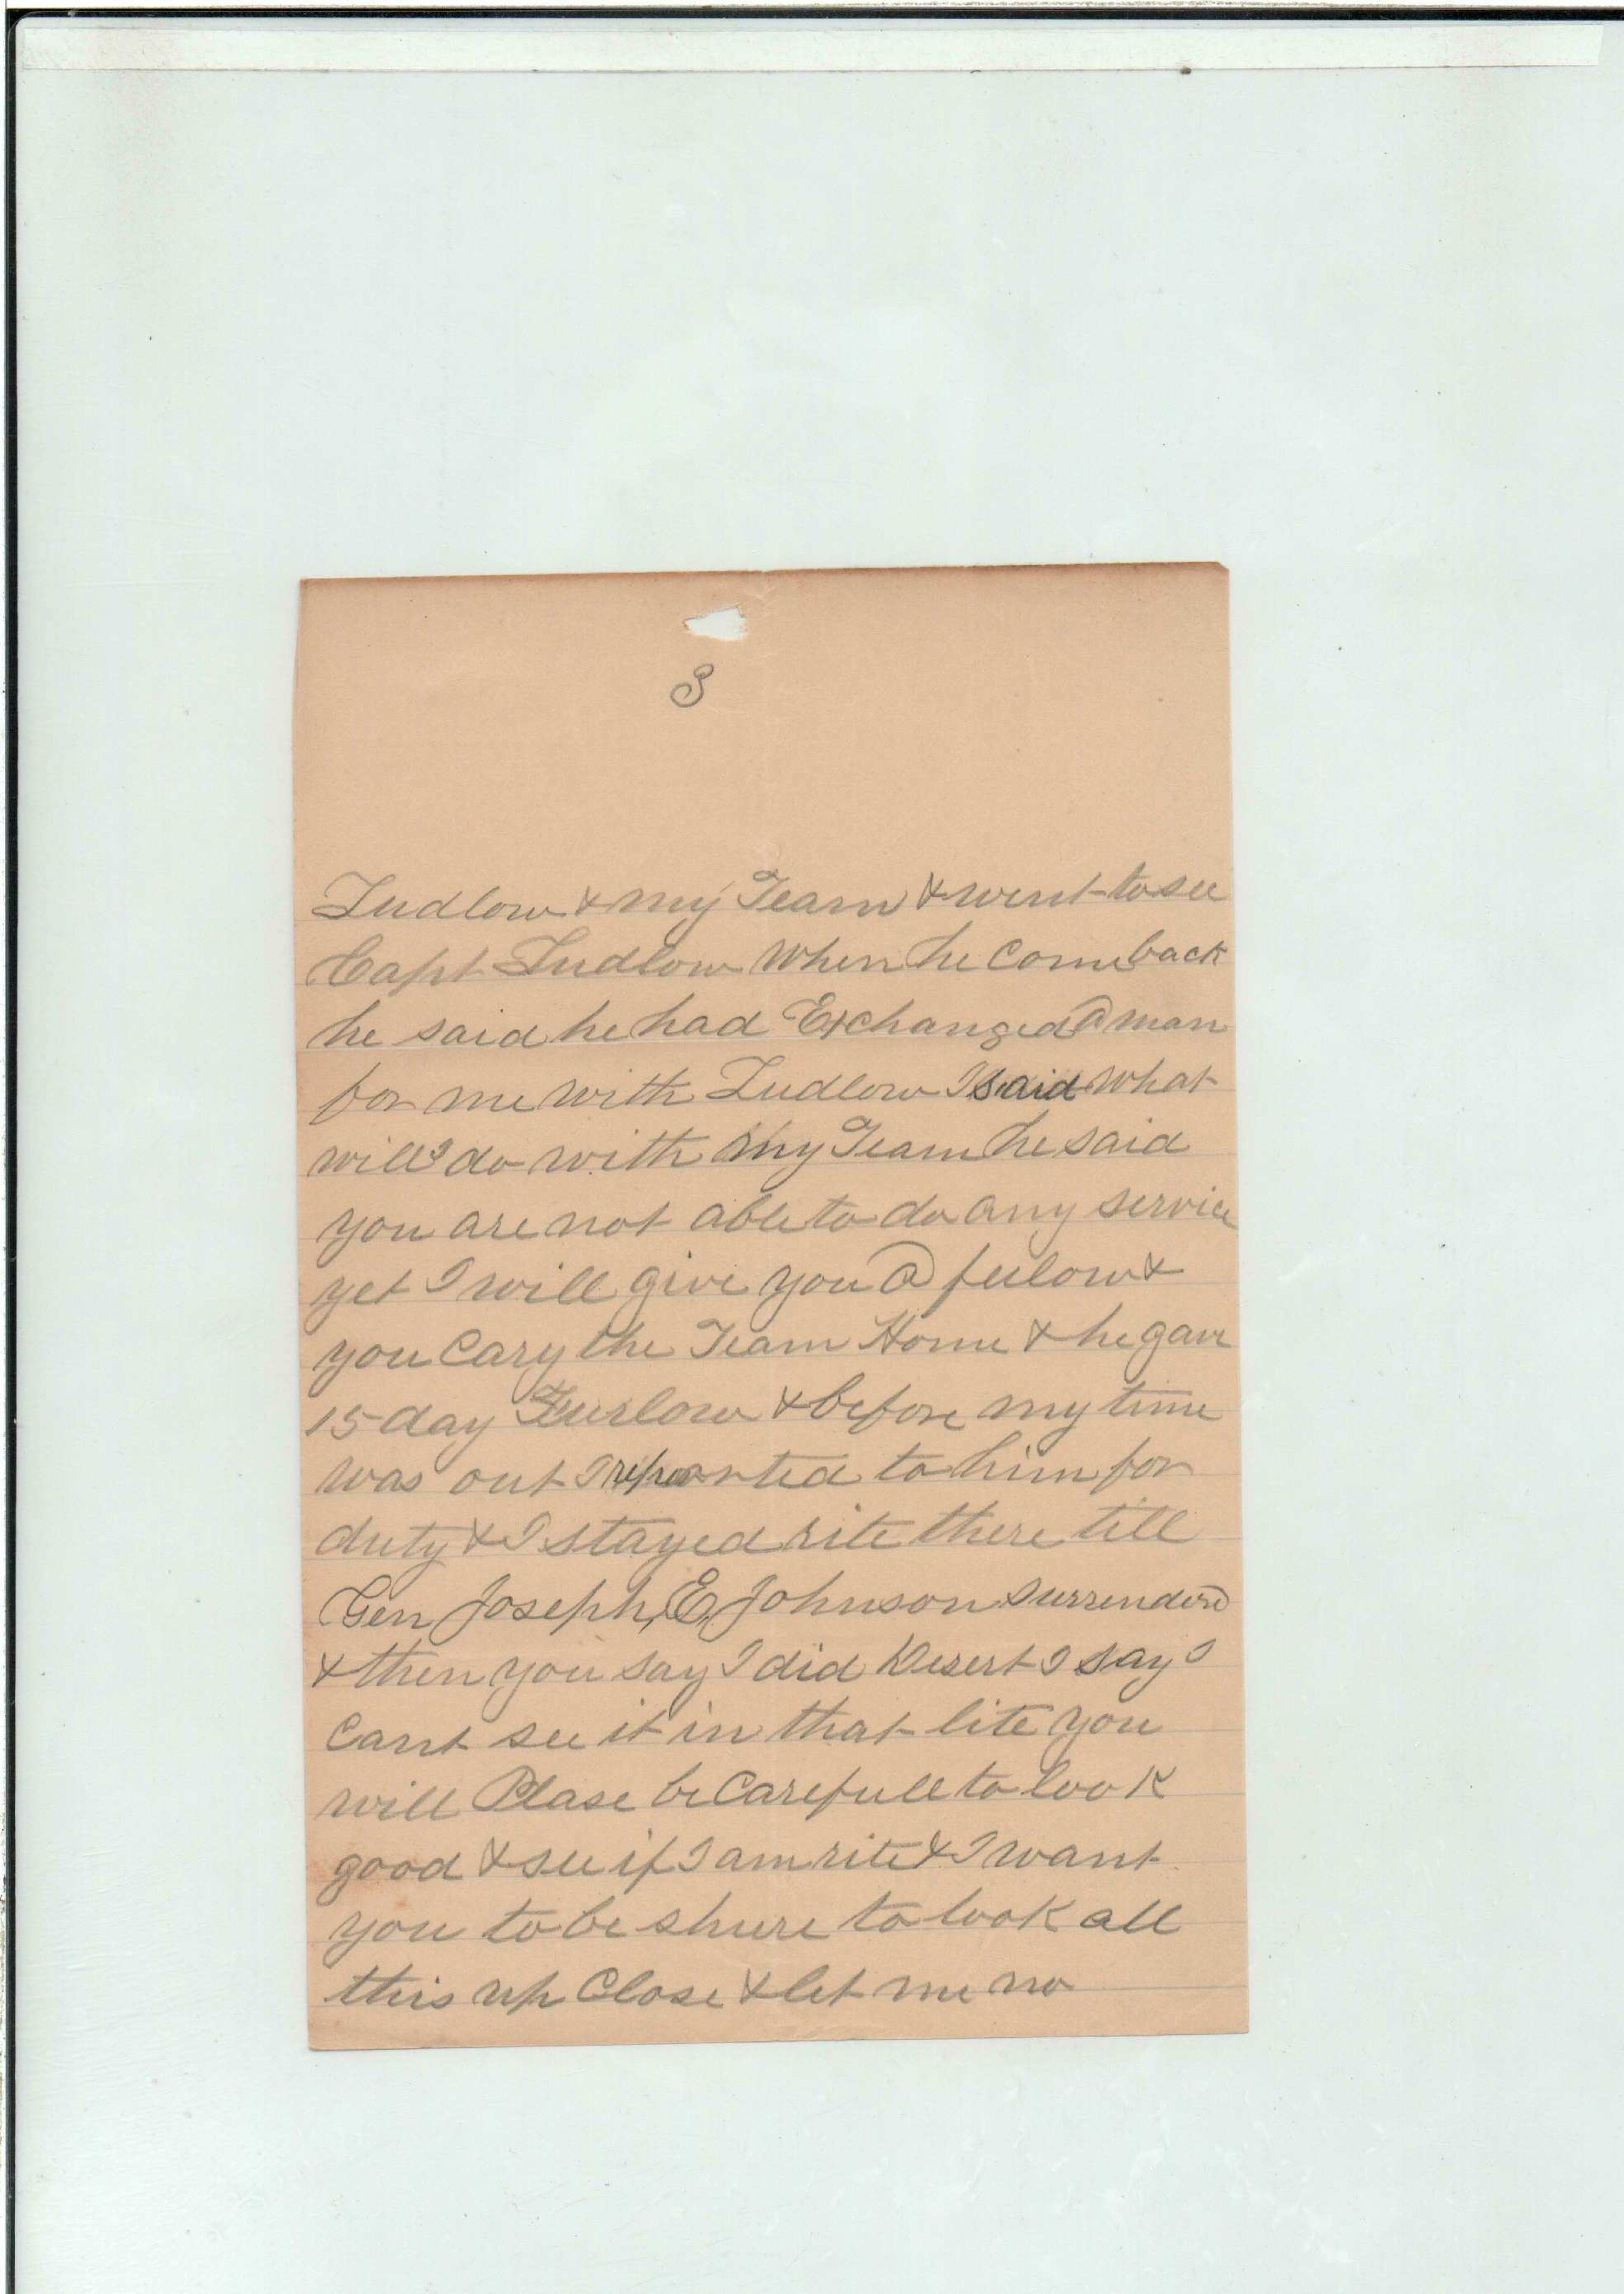 3
Ludlow & my Team & went to see
Capt Ludlow when he come back
he said he had Exchanged a man
for me with Ludlow I said what
will I do with my Team he said
you are not able to do any service
yet I will give you a fulow &
you Cary the Team Home & he gave
15 day Furlow & before my time
was out I reported to him for
duty & I stayed rite there till
Gen Joseph, E, Johnson surrendered
& then you say I did Desert I say I
Cant see it in that lite you
will Plase be Carefull to look
good & see if I am rite & I want
you to be shure to look all
this up Close & let me no